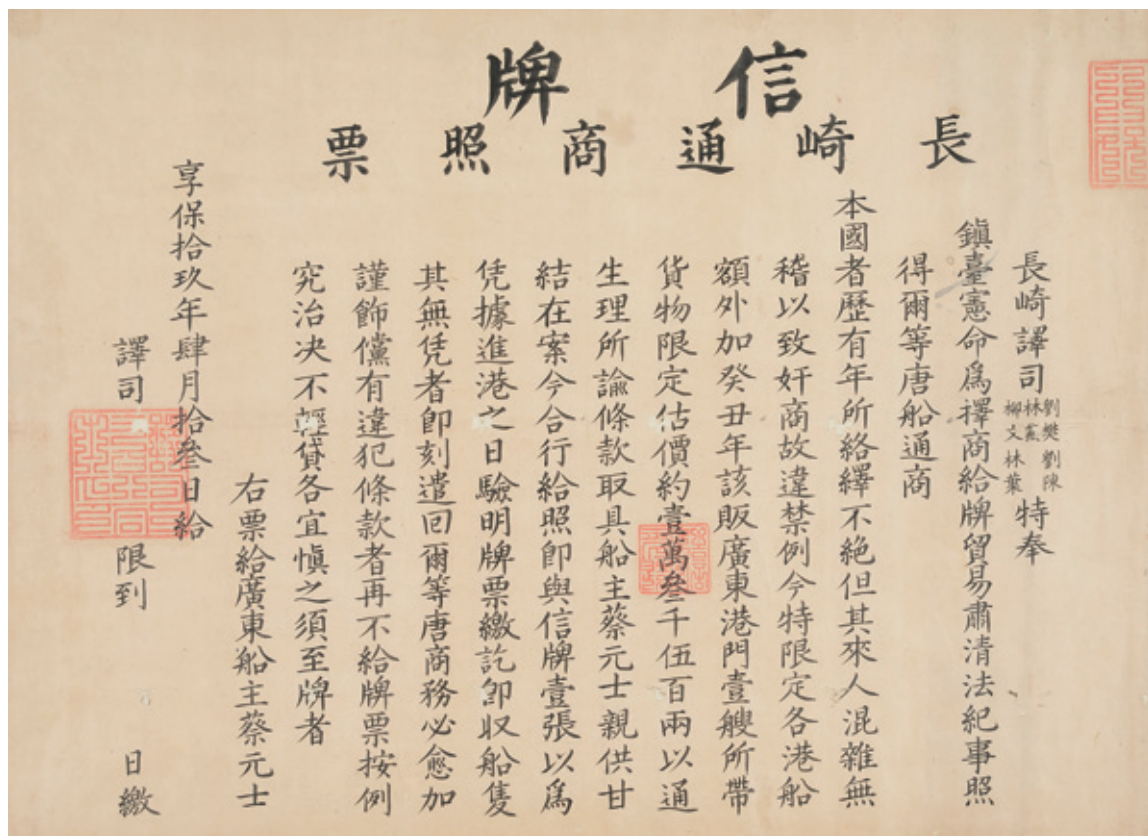 信牌
長崎通商照票
長崎譯司劉樊劉陳林藍林柳爻葉特奉
鎮臺憲命爲擇商給牌貿易肅清法紀事照
得爾等唐船通商
本國者歷有年所絡繹不絶但其來人混雜無
稽以致奸商故違禁例今特限定各港船
額外加癸丑年該販廣東港門壹艘所帶
貨物限定估價約壹萬叁千伍百兩以通
生理所諭條款取具船主蔡元士親供甘
結在案今合行給照即與信牌壹張以爲
凭據進港之日驗明牌票繳訖即收船隻
其無凭者即刻遣回爾等唐商務必愈加
謹飾儻有違犯條款者再不給牌票按例
究治决不輕貸各宜慎之須至牌者
右票給廣東船主蔡元士
享保拾玖年肆月拾叁日給
譯司 限到 日繳